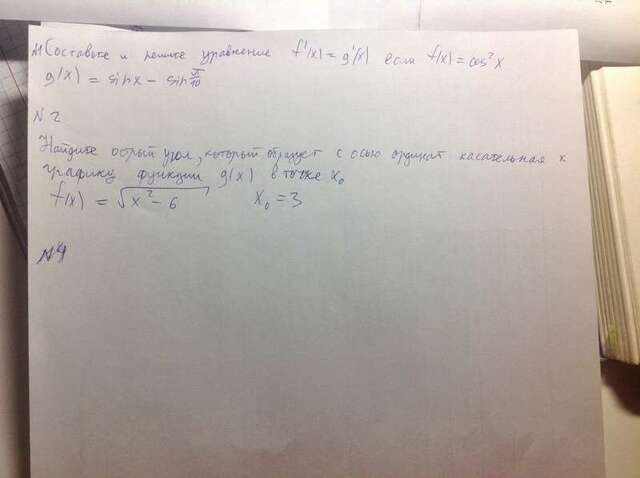 №1 Составьте и решите уравнение f'(x) = g'(x) если f(x) = cos² x
g(x) = sin x - sin π/10
№ 2
Найдите острый угол, который образует с осью ординат касательная к
графику функции g(x) в точке x₀
f(x) = √(x² - 6) x₀ = 3